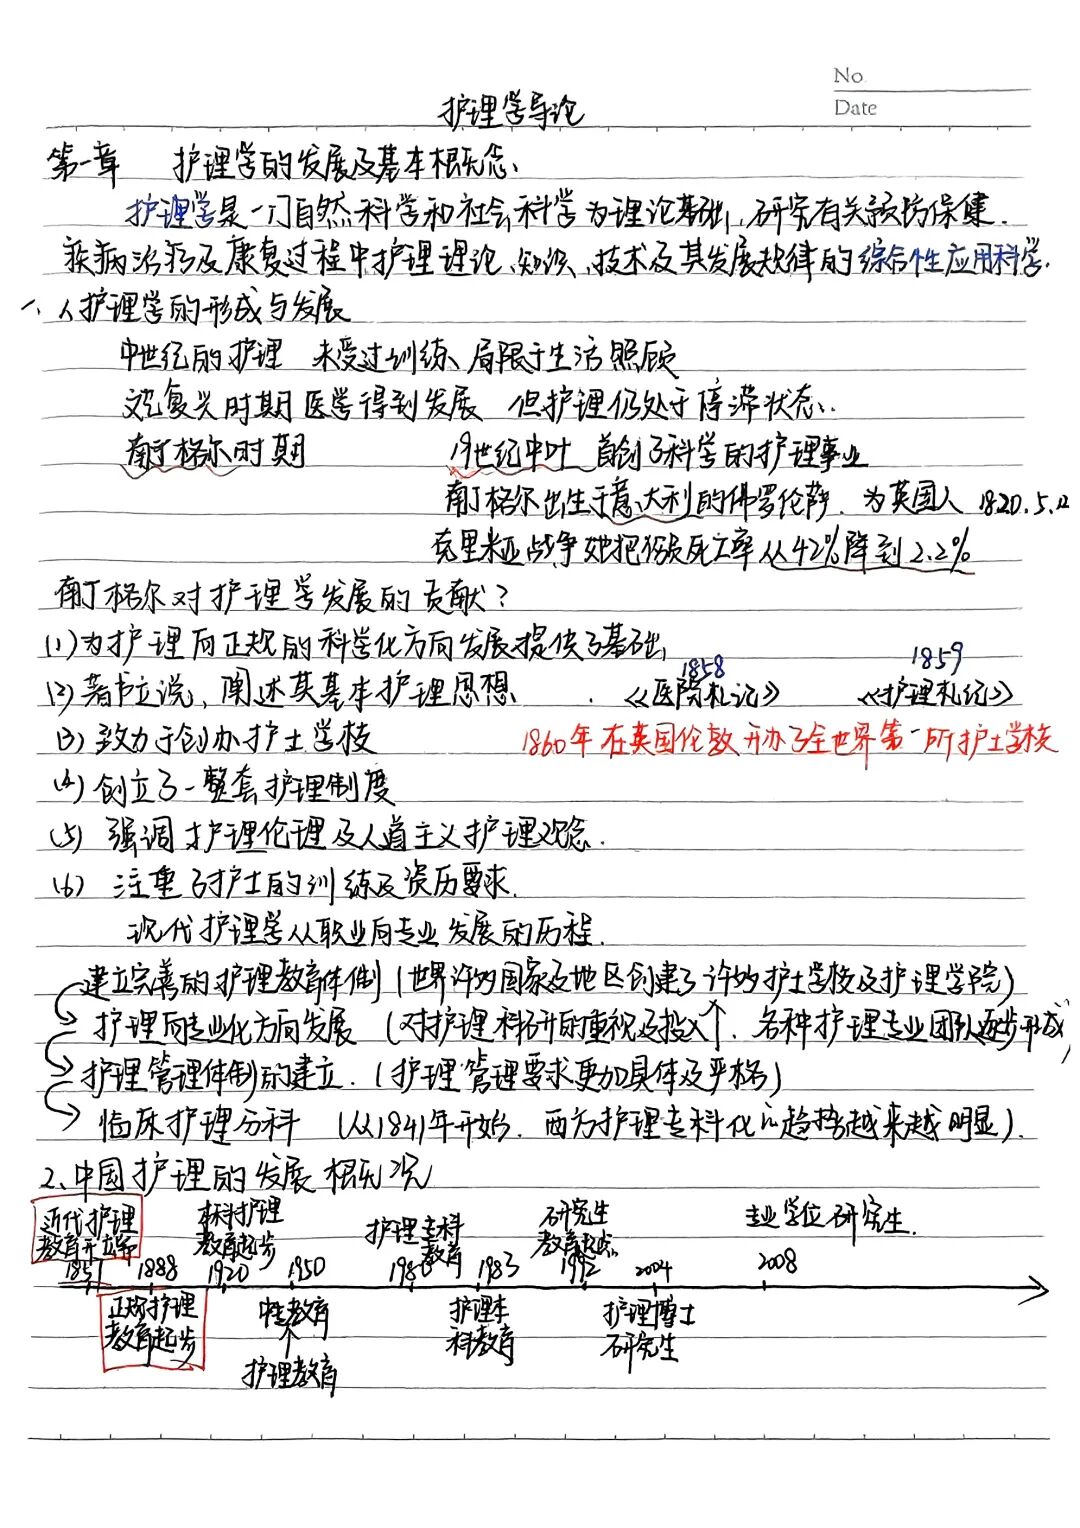 No
Date
护理学导论
第一章 护理学的发展及基本概念、
护理学是一门自然科学和社会科学为理论基础,研究有关预防保健.
疾病治疗及康复过程中护理理论、知识、技术及其发展规律的综合性应用科学.
一、人护理学的形成与发展
中世纪的护理 未受过训练、局限于生活照顾
文艺复兴时期医学得到发展 但护理仍处于停滞状态.
南丁格尔时期 19世纪中叶 首创了科学的护理事业
南丁格尔出生于意大利的佛罗伦萨. 为英国人 1820.5.12
克里米亚战争她把伤员死亡率从42%降到2.2%
南丁格尔对护理学发展的贡献?
(1)为护理向正规的科学化方向发展提供了基础
1858 1859
(2)著书立说,阐述其基本护理思想. 《医院札记》 《护理札记》
(3)致力于创办护士学校 1860年在英国伦敦开办了全世界第一所护士学校
(4)创立了一整套护理制度
(5)强调护理伦理及人道主义护理观念.
(6)注重了护士的训练及资历要求.
现代护理学从职业向专业发展的历程.
建立完善的护理教育体制(世界许多国家及地区创建了许多护士学校及护理学院)
护理向专业化方向发展 (对护理科研的重视及投入↑.各种护理专业团队逐步形成)
护理管理体制的建立.(护理管理要求更加具体及严格)
临床护理分科 (从1841年开始.西方护理专科化的趋势越来越明显).
2、中国护理的发展概况
近代护理 本科护理 护理专科 研究生 专业学位研究生.
教育 教育起步 教育 教育起点
1888 1920 1950 1983 1992 2004 2008
正规护理 中专教育 护理本 护理博士
教育起步 ↑ 科教育 研究生
护理教育